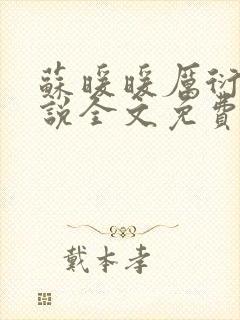 蘇暖暖厲衍
說全文免費
戴本孝